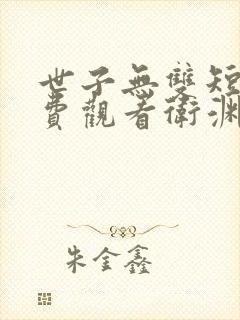 世子無雙短
費觀看衛淵
朱金鑫